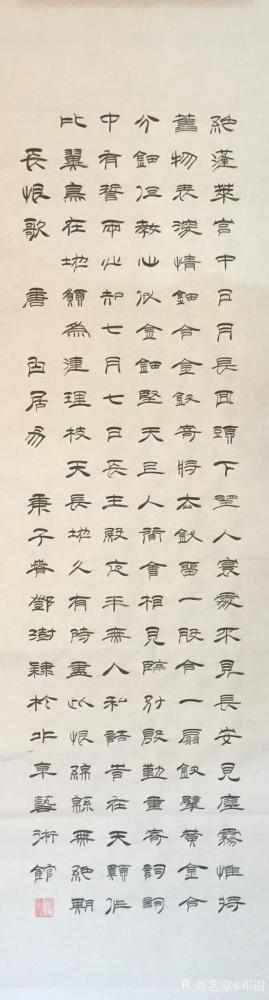 絕蓬萊宮中日月長回頭下望人寰處不見長安見塵霧惟將
舊物表深情鈿合金釵寄將去釵留一股合一扇釵擘黃金合
分鈿但教心似金鈿堅天上人間會相見臨別殷勤重寄詞詞
中有誓兩心知七月七日長生殿夜半無人私語時在天願作
比翼鳥在地願為連理枝天長地久有時盡此恨綿綿無絕期
長恨歌 唐 白居易 庚子春鄧澍隸於北京藝術館
兴艺堂@邓澍